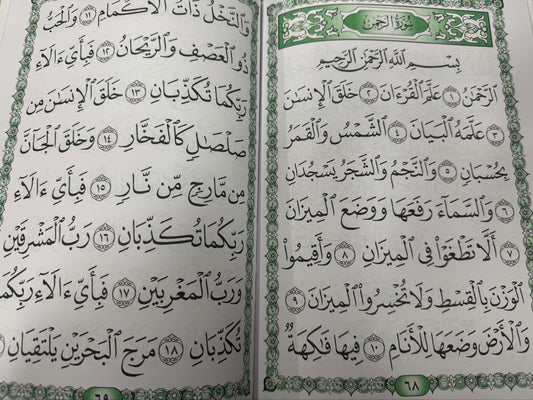 سُورَةُ الرَّحْمٰن
بِسْمِ اللَّهِ الرَّحْمَٰنِ الرَّحِيمِ
الرَّحْمَٰنُ ١ عَلَّمَ الْقُرْءَانَ ٢ خَلَقَ الْإِنسَانَ
٣ عَلَّمَهُ الْبَيَانَ ٤ الشَّمْسُ وَالْقَمَرُ
بِحُسْبَانٍ ٥ وَالنَّجْمُ وَالشَّجَرُ يَسْجُدَانِ
٦ وَالسَّمَاءَ رَفَعَهَا وَوَضَعَ الْمِيزَانَ
٧ أَلَّا تَطْغَوْا فِي الْمِيزَانِ ٨ وَأَقِيمُوا
الْوَزْنَ بِالْقِسْطِ وَلَا تُخْسِرُوا الْمِيزَانَ ٩
وَالْأَرْضَ وَضَعَهَا لِلْأَنَامِ ١٠ فِيهَا فَاكِهَةٌ
٦٨
وَالنَّخْلُ ذَاتُ الْأَكْمَامِ ١١ وَالْحَبُّ
ذُو الْعَصْفِ وَالرَّيْحَانُ ١٢ فَبِأَيِّ ءَالَاءِ
رَبِّكُمَا تُكَذِّبَانِ ١٣ خَلَقَ الْإِنسَانَ مِن
صَلْصَالٍ كَالْفَخَّارِ ١٤ وَخَلَقَ الْجَانَّ
مِن مَّارِجٍ مِّن نَّارٍ ١٥ فَبِأَيِّ ءَالَاءِ
رَبِّكُمَا تُكَذِّبَانِ ١٦ رَبُّ الْمَشْرِقَيْنِ
وَرَبُّ الْمَغْرِبَيْنِ ١٧ فَبِأَيِّ ءَالَاءِ رَبِّكُمَا
تُكَذِّبَانِ ١٨ مَرَجَ الْبَحْرَيْنِ يَلْتَقِيَانِ
٦٩